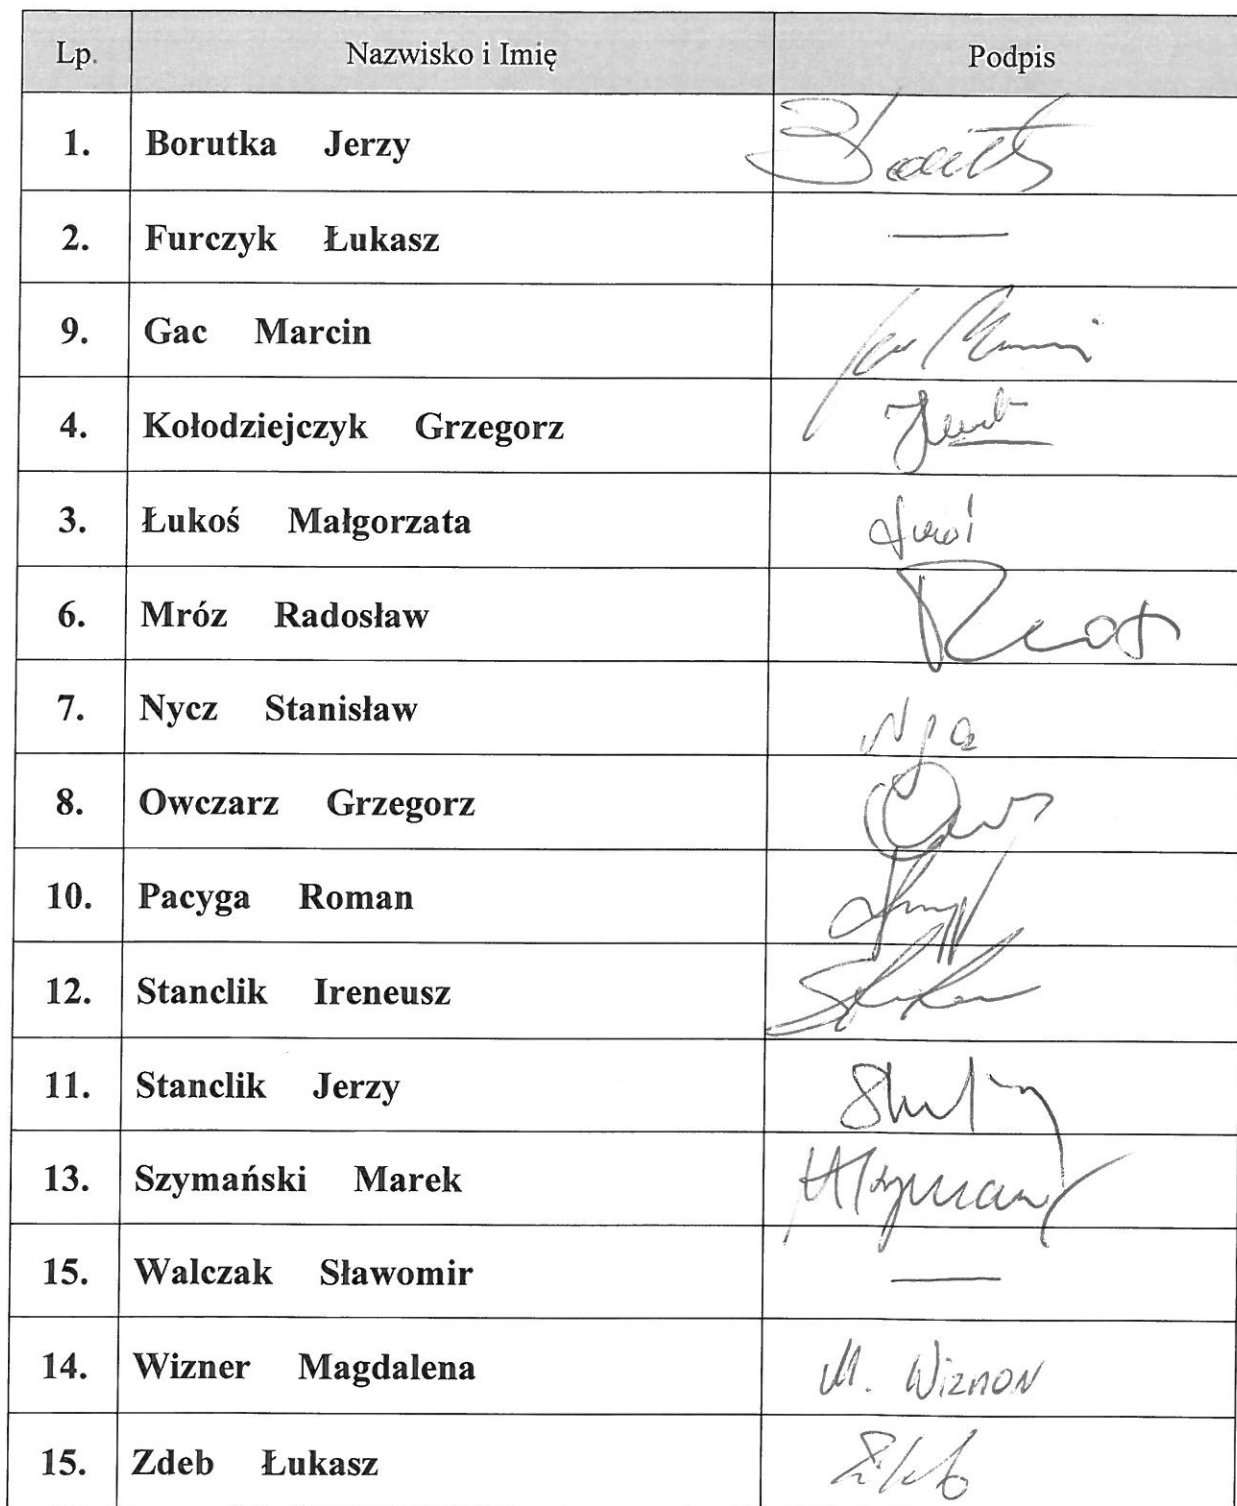 Lp. Nazwisko i Imię Podpis
1. Borutka Jerzy
2. Furczyk Łukasz —
9. Gac Marcin
4. Kołodziejczyk Grzegorz
3. Łukoś Małgorzata
6. Mróz Radosław
7. Nycz Stanisław
8. Owczarz Grzegorz
10. Pacyga Roman
12. Stanclik Ireneusz
11. Stanclik Jerzy
13. Szymański Marek
15. Walczak Sławomir —
14. Wizner Magdalena M.
15. Zdeb Łukasz